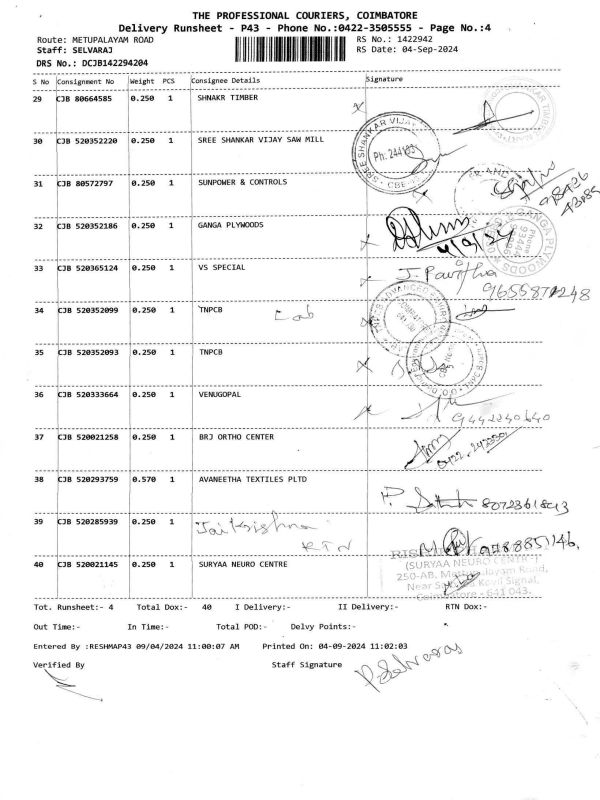 THE PROFESSIONAL COURIERS, COIMBATORE
Delivery Runsheet - P43 - Phone No.:0422-3505555 - Page No.:4
Route: METUPALAYAM ROAD RS No.: 1422942
Staff: SELVARAJ RS Date: 04-Sep-2024
DRS No.: DCJB142294204
S No Consignment No Weight PCS Consignee Details Signature
29 CJB 80664585 0.250 1 SHNAKR TIMBER
30 CJB 520352220 0.250 1 SREE SHANKAR VIJAY SAW MILL
SREE SHANKAR VIJAY
Ph: 244183
31 CJB 80572797 0.250 1 SUNPOWER & CONTROLS
32 CJB 520352186 0.250 1 GANGA PLYWOODS
4/9/24
GANGA PLYWOODS
Phone
33 CJB 520365124 0.250 1 VS SPECIAL
J. Pavitha
9655871248
34 CJB 520352099 0.250 1 TNPCB Lab
35 CJB 520352093 0.250 1 TNPCB
36 CJB 520333664 0.250 1 VENUGOPAL
9442240640
37 CJB 520021258 0.250 1 BRJ ORTHO CENTER
38 CJB 520293759 0.570 1 AVANEETHA TEXTILES PLTD
39 CJB 520285939 0.250 1 Jai Krishna
RTN
40 CJB 520021145 0.250 1 SURYAA NEURO CENTRE
(SURYAA NEURO CENTRE)
250-AB, Mettupalayam Road,
Kovil Signal,
Coimbatore - 641 043.
Tot. Runsheet:- 4 Total Dox:- 40 I Delivery:- II Delivery:- RTN Dox:-
Out Time:- In Time:- Total POD:- Delvy Points:-
Entered By :RESHMAP43 09/04/2024 11:00:07 AM Printed On: 04-09-2024 11:02:03
Verified By Staff Signature
P. Selvaraj